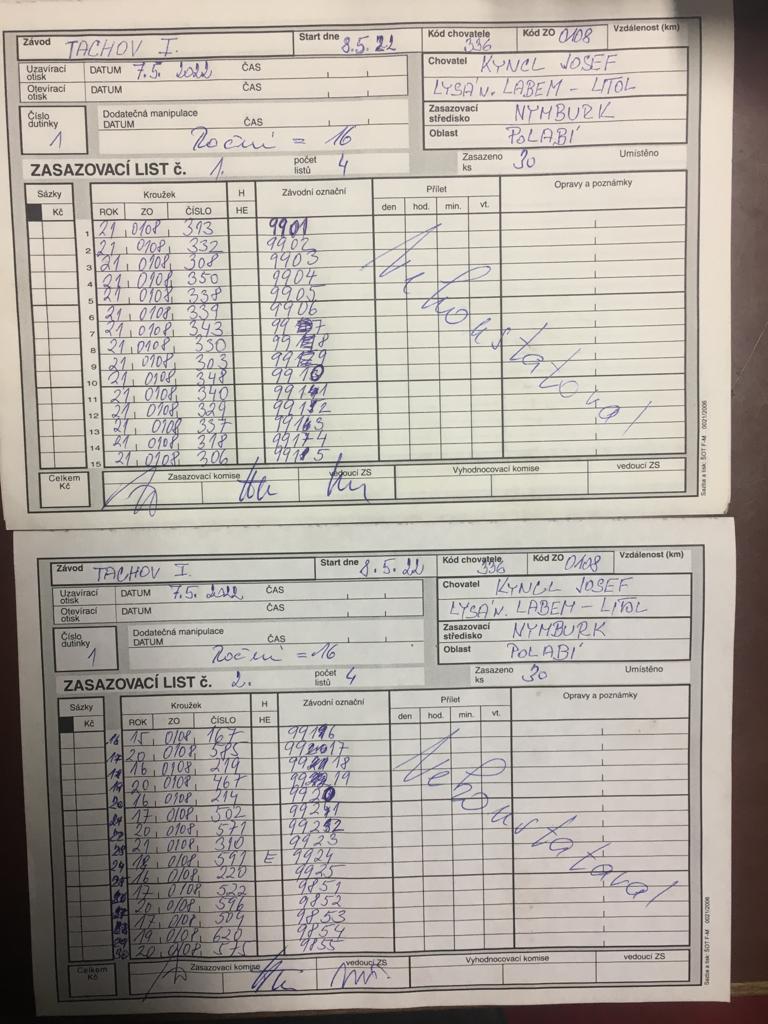 Závod TACHOV I. Start dne 8.5.22 Kód chovatele 336 Kód ZO 0108 Vzdálenost (km)
Uzavírací otisk DATUM 7.5. 2022 ČAS
Otevírací otisk DATUM ČAS
Chovatel KYNCL JOSEF
LYSÁ N. LABEM - LITOL
Číslo dutinky 1
Dodatečná manipulace
DATUM ČAS
Roční = 16
Zasazovací středisko NYMBURK
Oblast POLABÍ
ZASAZOVACÍ LIST č. 1. počet listů 4 Zasazeno ks 30 Umístěno
Sázky Kroužek H Závodní označní Přílet Opravy a poznámky
Kč ROK ZO ČÍSLO HE den hod. min. vt.
1 21 0108 313 9901
2 21 0108 332 9902
3 21 0108 308 9903
4 21 0108 350 9904
5 21 0108 338 9905
6 21 0108 339 9906
7 21 0108 343
8 21 0108 330
9 21 0108 303
10 21 0108 348 9910
11 21 0108 340
12 21 0108 329
13 21 0108 337
14 21 0108 318
15 21 0108 306
Nekonstatoval
Celkem Kč Zasazovací komise vedoucí ZS Vyhodnocovací komise vedoucí ZS
Sazba a tisk: ŠOT F-M 0021/2006
Závod TACHOV I. Start dne 8.5.22 Kód chovatele 336 Kód ZO 0108 Vzdálenost (km)
Uzavírací otisk DATUM 7.5. 2022 ČAS
Otevírací otisk DATUM ČAS
Chovatel KYNCL JOSEF
LYSÁ N. LABEM - LITOL
Číslo dutinky 1
Dodatečná manipulace
DATUM ČAS
Roční = 16
Zasazovací středisko NYMBURK
Oblast POLABÍ
ZASAZOVACÍ LIST č. 2. počet listů 4 Zasazeno ks 30 Umístěno
Sázky Kroužek H Závodní označní Přílet Opravy a poznámky
Kč ROK ZO ČÍSLO HE den hod. min. vt.
16 15 0108 167
17 20 0108 585
18 16 0108 219
19 20 0108 467
20 16 0108 214 9920
21 17 0108 502
22 20 0108 571
23 21 0108 310 9923
24 18 0108 591 E 9924
25 16 0108 220 9925
17 0108 522 9851
20 0108 596 9852
17 0108 504 9853
19 0108 620 9854
30 20 0108 575 9855
Nekonstatoval
Celkem Kč Zasazovací komise vedoucí ZS Vyhodnocovací komise vedoucí ZS
Sazba a tisk: ŠOT F-M 0021/2006